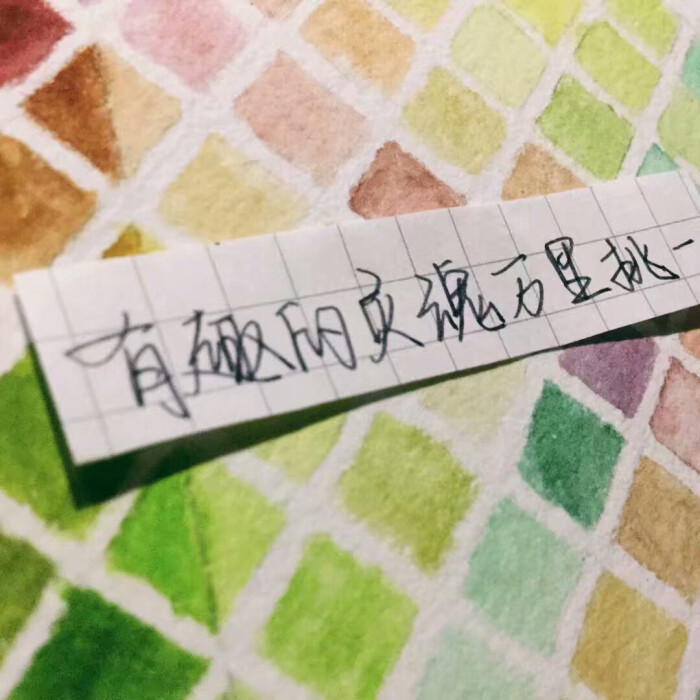 有趣的灵魂万里挑一